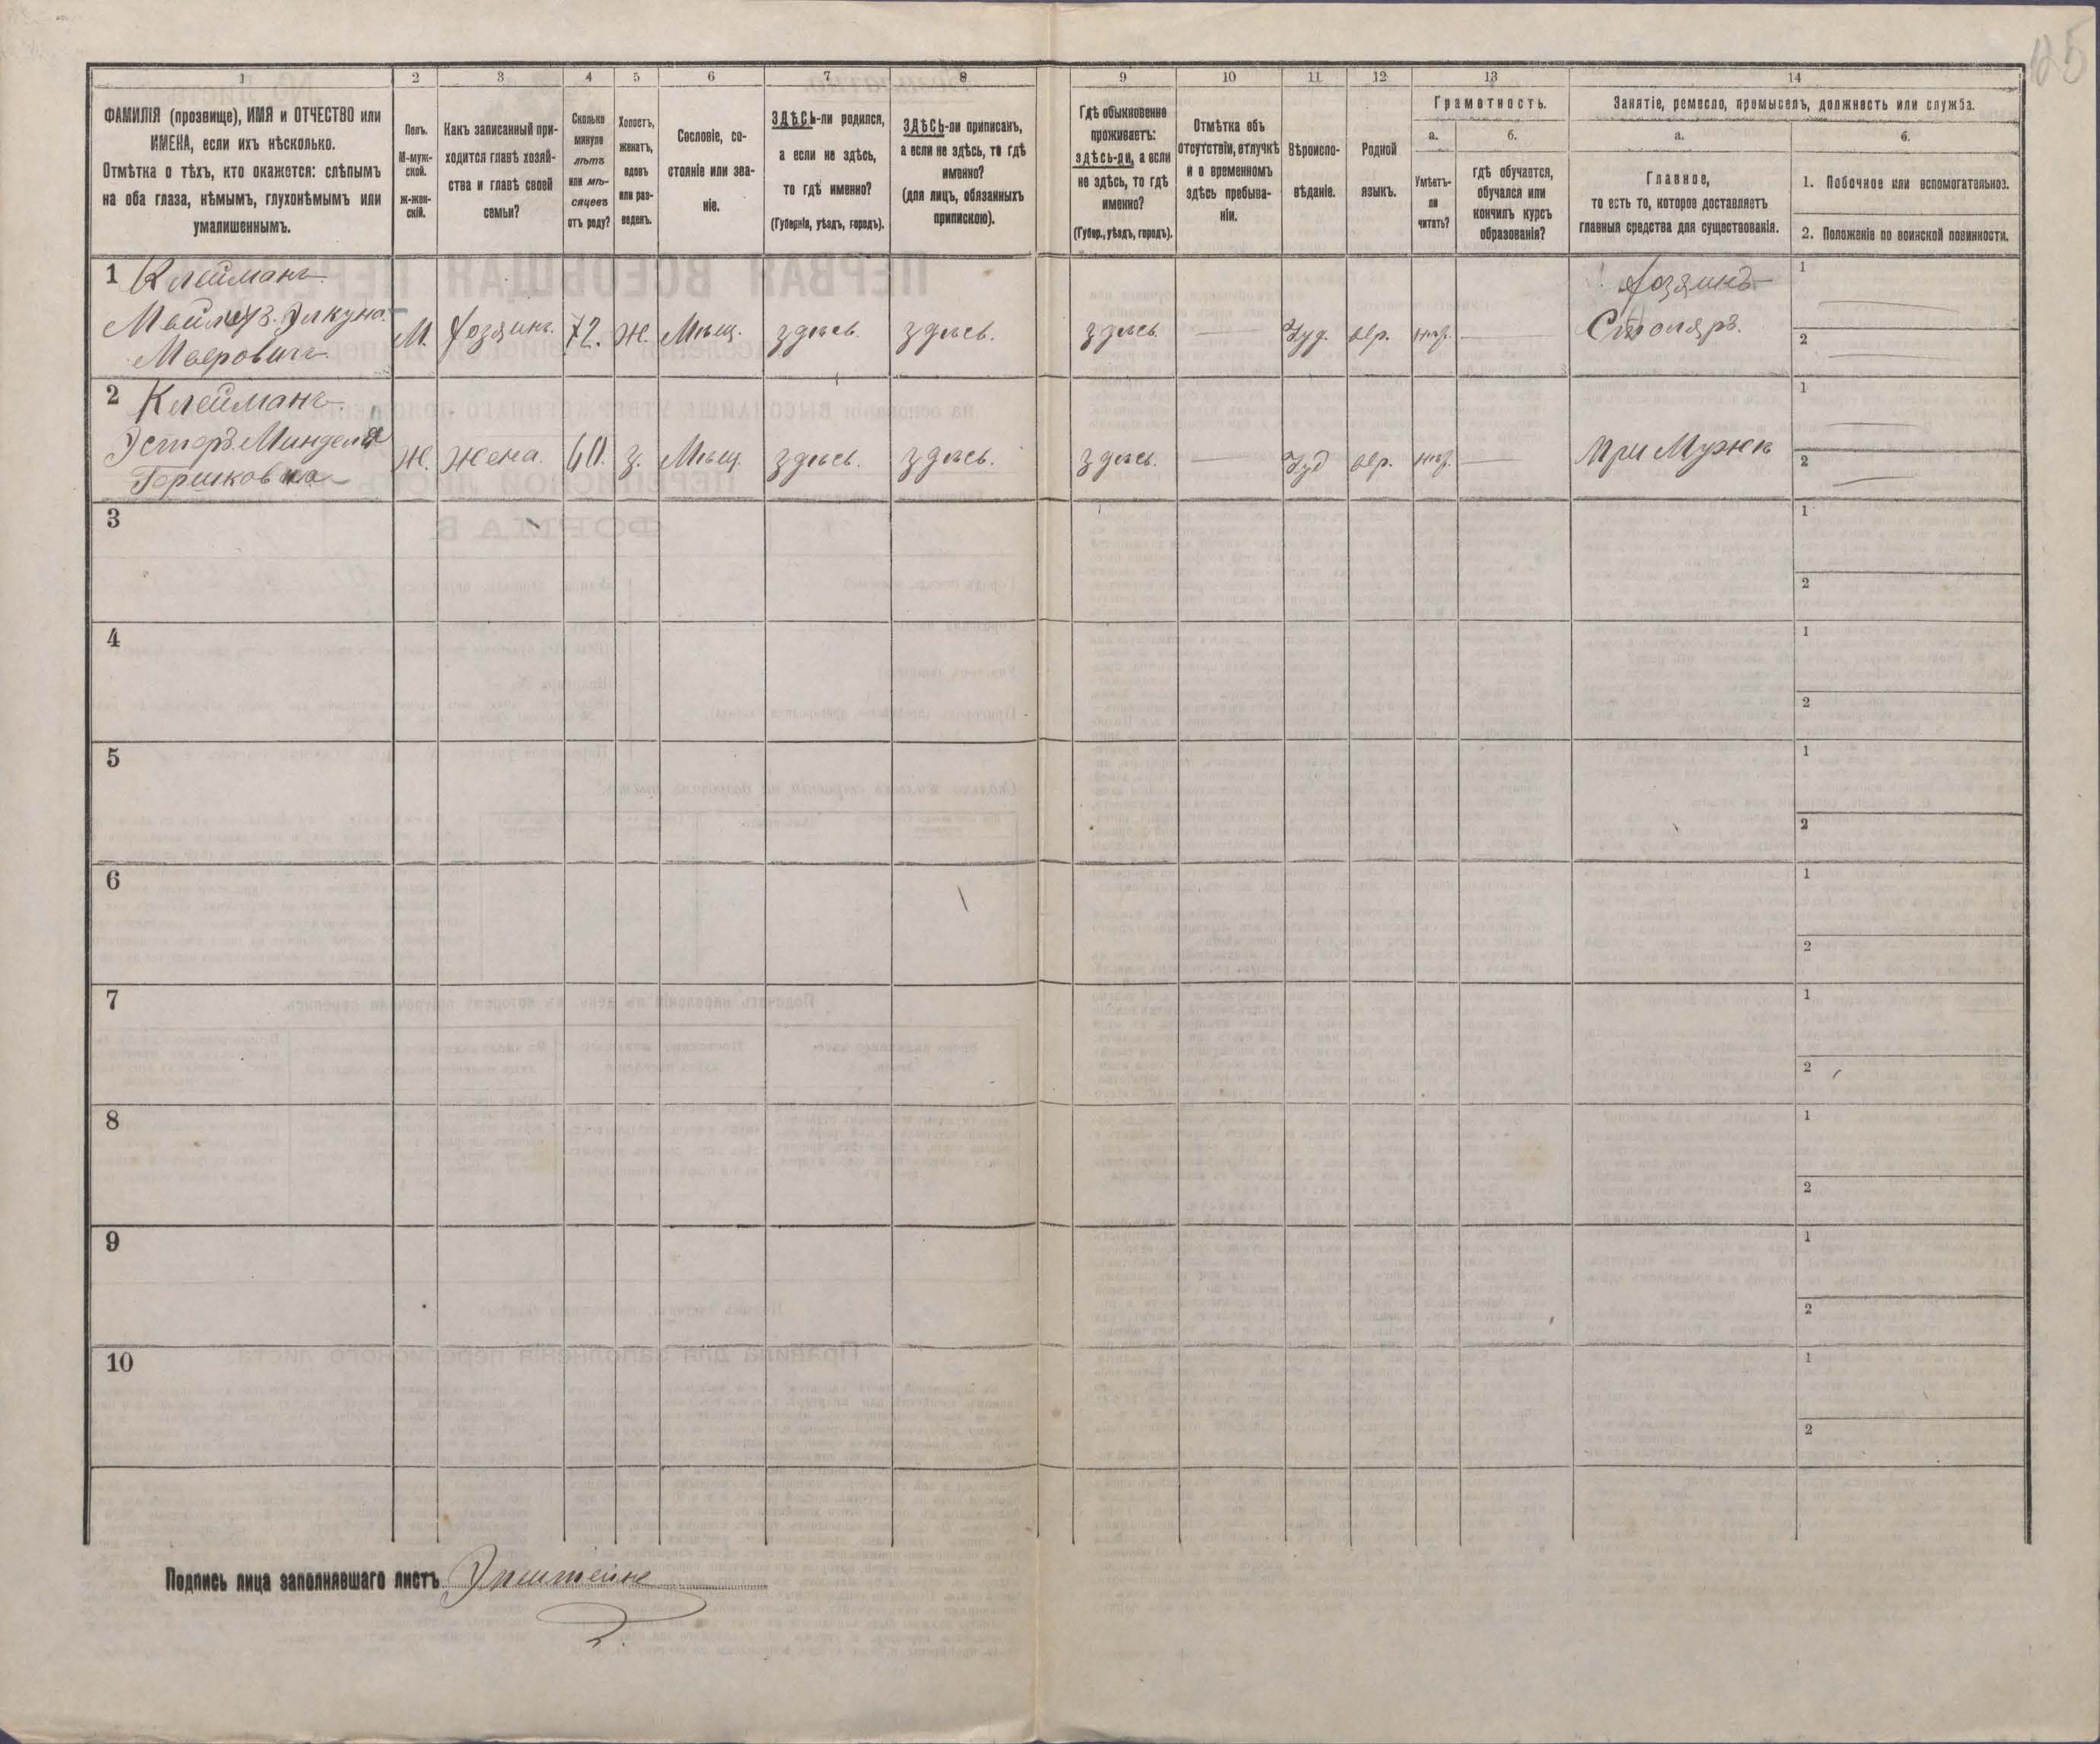 1 2 3 4 5 6 7 8 9 10 11 12 13 14
ФАМИЛІЯ (прозвище), ИМЯ и ОТЧЕСТВО или
ИМЕНА, если ихъ нѣсколько.
Отмѣтка о тѣхъ, кто окажется: слѣпымъ
на оба глаза, нѣмымъ, глухонѣмымъ или
умалишеннымъ.
Полъ.
М-муж-
ской.
ж-жен-
скій.
Какъ записанный при-
ходится главѣ хозяй-
ства и главѣ своей
семьи?
Сколько
минуло
лѣтъ
или мѣ-
сяцевъ
отъ роду?
Холостъ,
женатъ,
вдовъ
или раз-
веденъ.
Сословіе, со-
стояніе или зва-
ніе.
ЗДѢСЬ-ли родился,
а если не здѣсь,
то гдѣ именно?
(Губернія, уѣздъ, городъ).
ЗДѢСЬ-ли приписанъ,
а если не здѣсь, то гдѣ
именно?
(для лицъ, обязанныхъ
припискою).
Гдѣ обыкновенно
проживаетъ:
здѣсь-ли, а если
не здѣсь, то гдѣ
именно?
(Губер., уѣздъ, городъ).
Отмѣтка объ
отсутствіи, отлучкѣ
и о временномъ
здѣсь пребыва-
ніи.
Вѣроиспо-
вѣданіе.
Родной
языкъ.
Грамотность.
а. б.
Умѣетъ-
ли
читать?
гдѣ обучается,
обучался или
кончилъ курсъ
образованія?
Занятіе, ремесло, промыселъ, должность или служба.
а. б.
Главное,
то есть то, которое доставляетъ
главныя средства для существованія.
1. Побочное или вспомогательное.
2. Положеніе по воинской повинности.
1 Клейманъ
Маеровичъ
М. Хозяинъ. 72. Ж. Мѣщ. здѣсь. здѣсь. здѣсь. — Іуд. евр. —
Хозяинъ
Столяръ.
1
2
2 Клейманъ
Эстеръ Миндель
Гершковна
Ж. Жена. 60. з. Мѣщ. здѣсь. здѣсь. здѣсь. — Іуд евр. —
При Мужѣ
1
2
3 1
2
4 1
2
5 1
2
6 1
2
7 1
2
8 1
2
9 1
2
10 1
2
Подпись лица заполнявшаго листъ